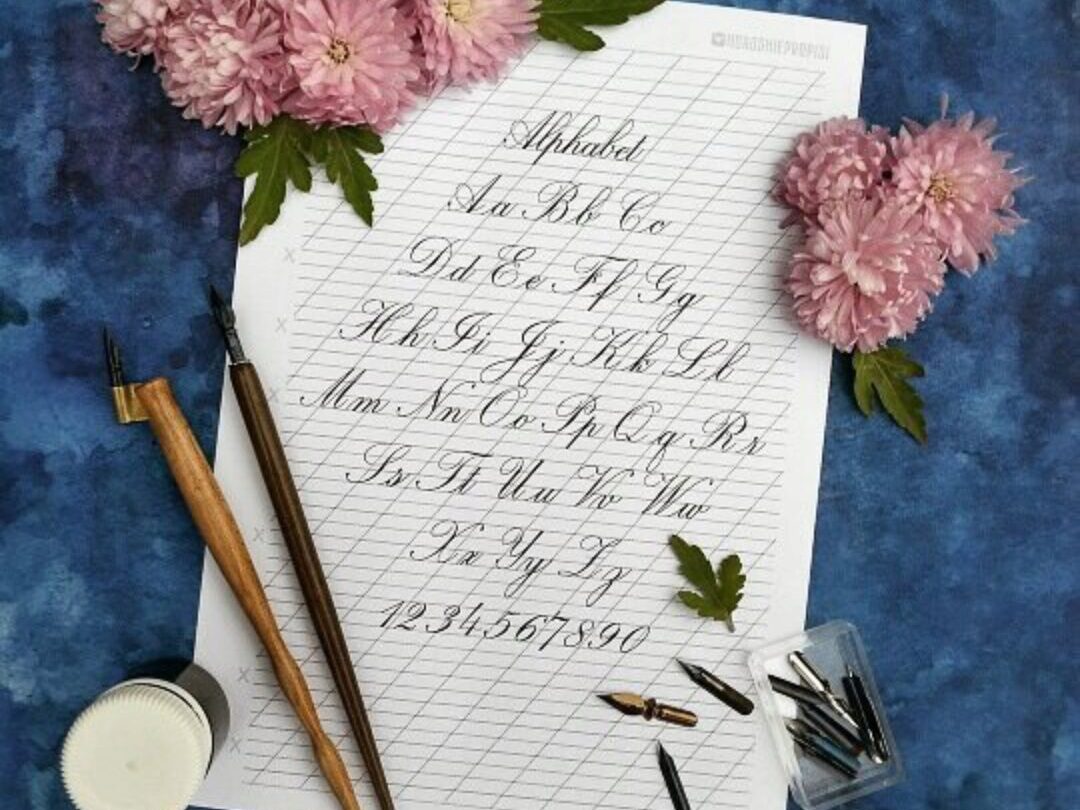 @HOROSHIEPROPISI
Alphabet
Aa Bb Cc
Dd Ee Ff Gg
Hh Ii Jj Kk Ll
Mm Nn Oo Pp Qq Rr
Ss Tt Uu Vv Ww
Xx Yy Zz
1234567890